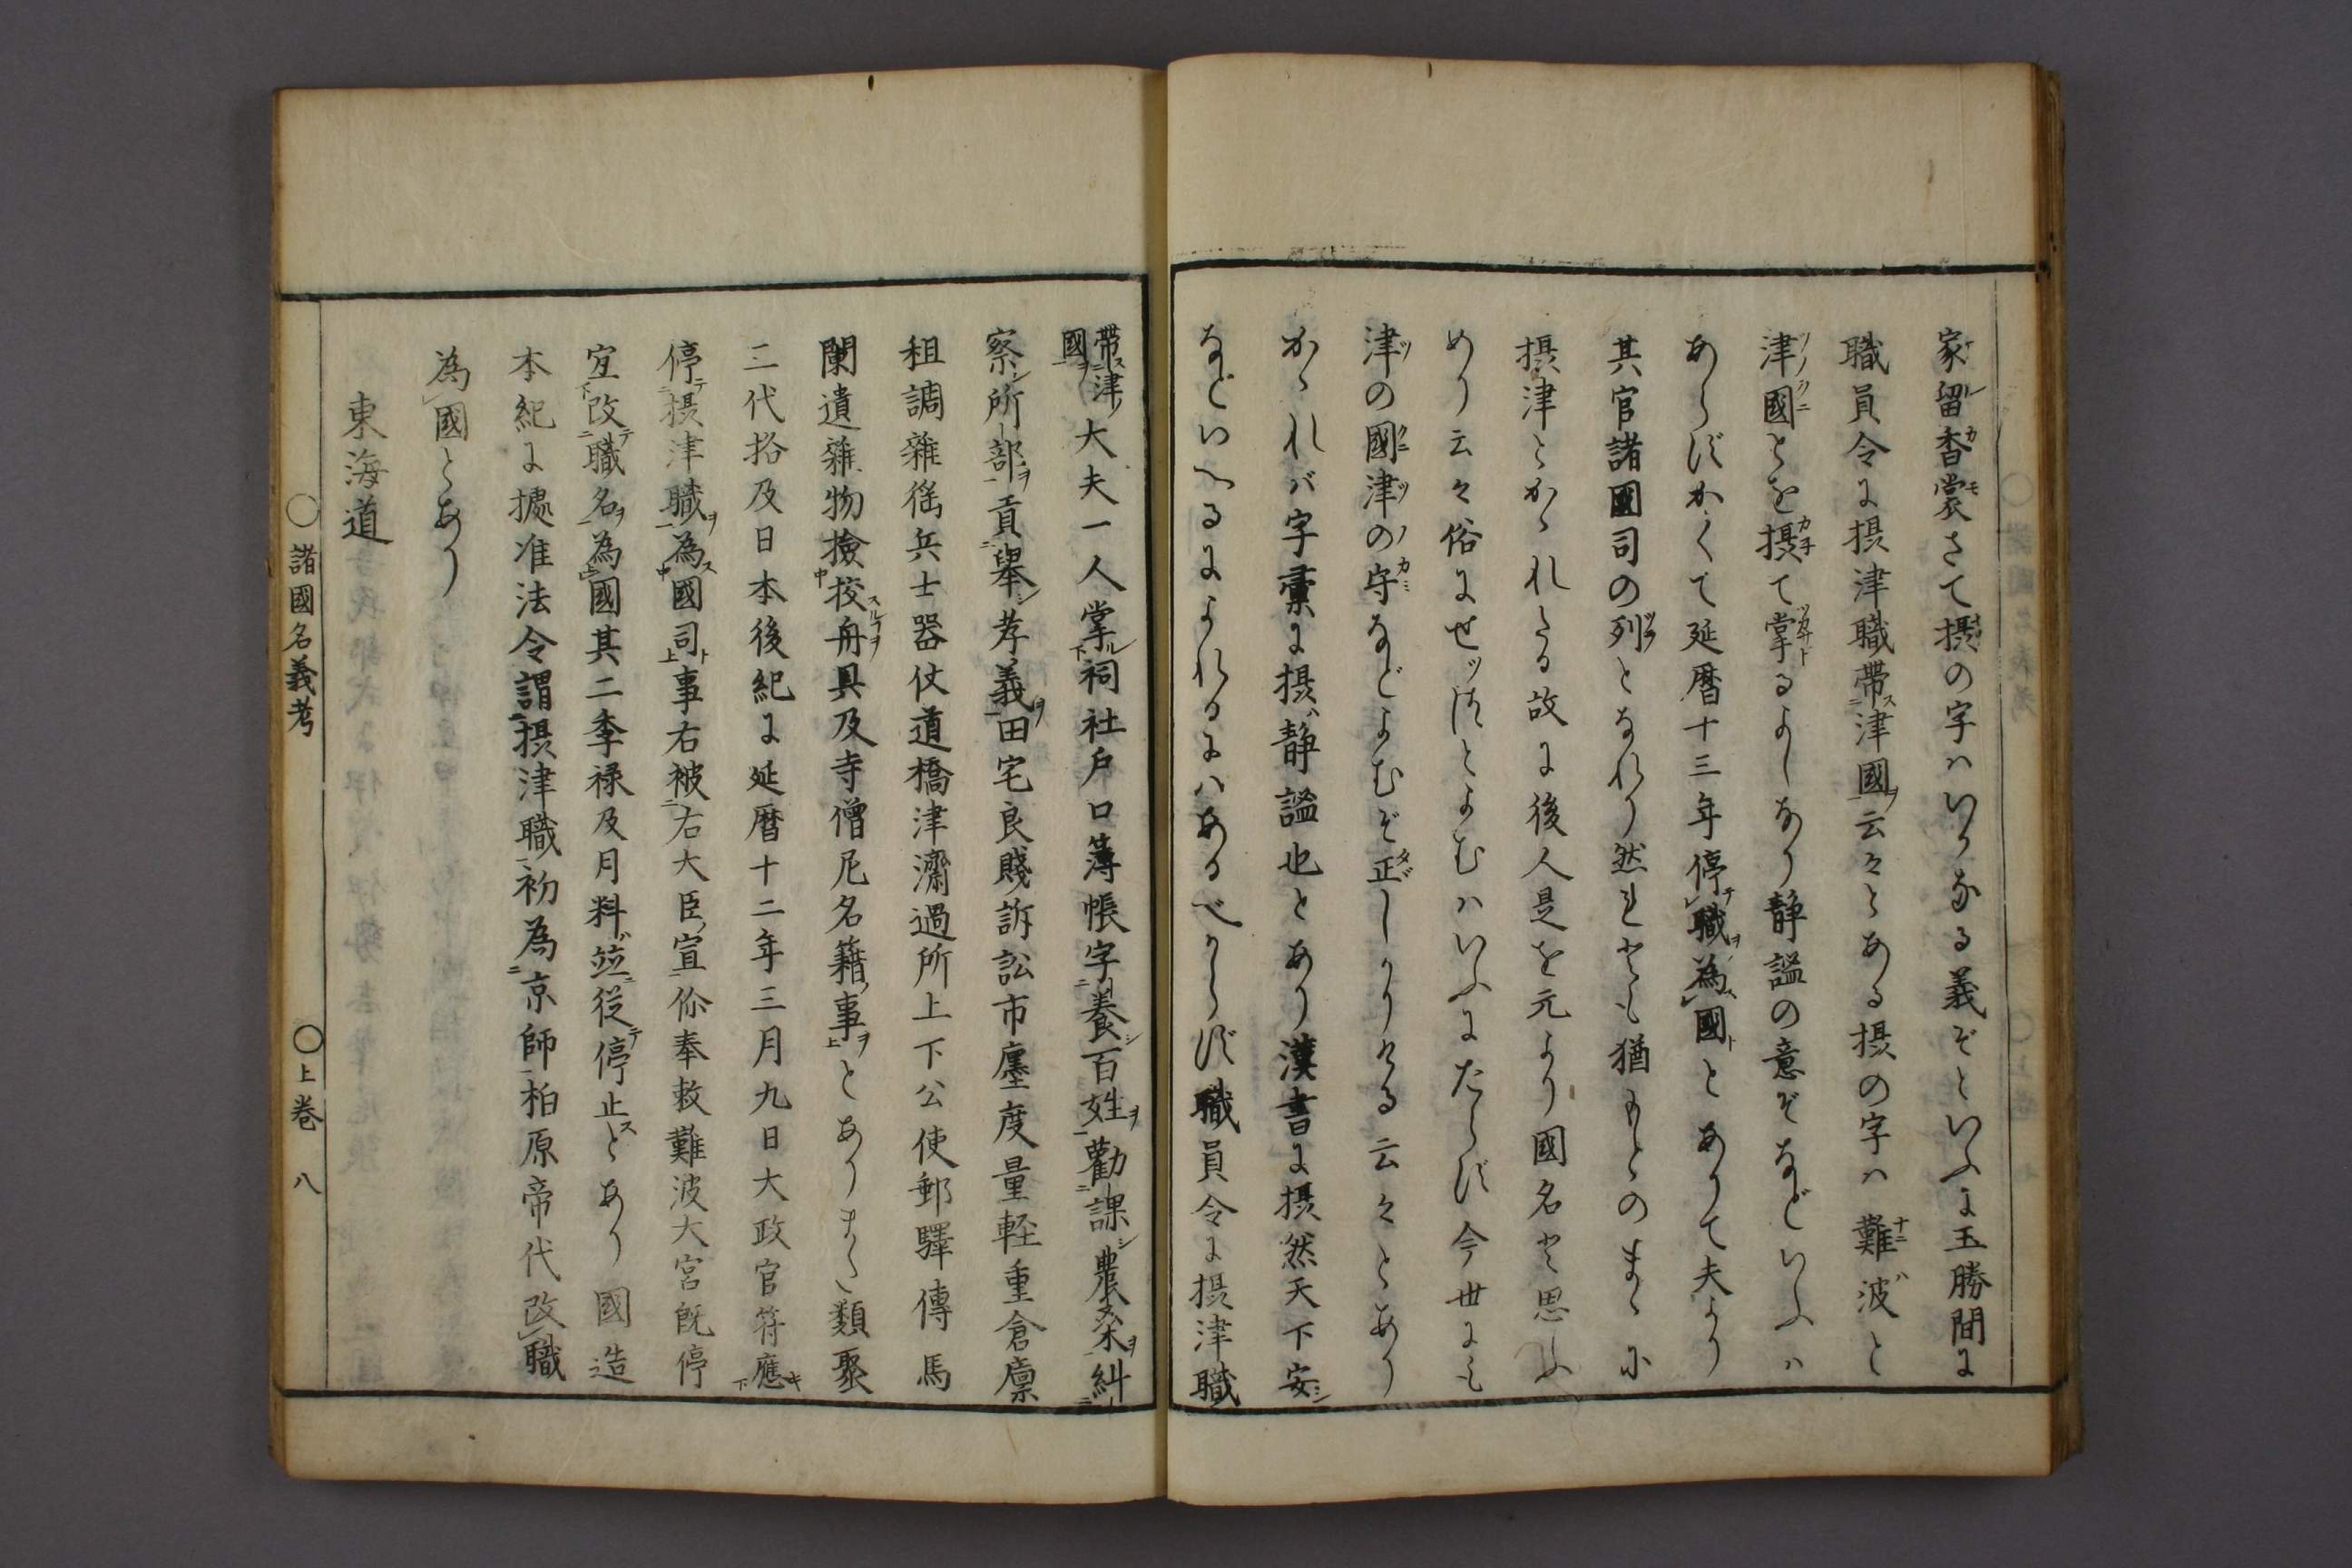 家留香裳さて摂の字ハいかなる義ぞといふに玉勝間に
職員令に摂津職帯津國云々とある摂の字ハ難波と
津國とを摂て掌るよしなり静謐の意ぞなどいふハ
あらずかくて延暦十三年停職為國とありて夫より
其官諸國司の列となれり然れども猶もとのまゝに
摂津とかゝれたる故に後人是を元より國名と思ふ
めり云々俗にせッつとよむハいふにたらず今世にも
津の國津の守などよむぞ正しかりける云々とあり
かゝれバ字彙に摂静謐也とあり漢書に摂然天下安
などいへるによれるにハあるべからず職員令に摂津職
帯津國
大夫一人掌祠社戸口簿帳字養百姓勸課農桑糾
察所部貢舉孝義田宅良賤訴訟市廛度量軽重倉廩
租調雜徭兵士器仗道橋津濟過所上下公使郵驛傳馬
闌遺雜物撿挍舟具及寺僧尼名籍事とありまた類聚
三代挌及日本後紀に延暦十二年三月九日大政官符應
停摂津職為國司事右被右大臣宣偁奉敕難波大宮既停
宜改職名為國其二季禄及月料並從停止とあり國造
本紀に據准法令謂摂津職初為京師柏原帝代改職
為國とあり
東海道
諸國名義考
上巻 八